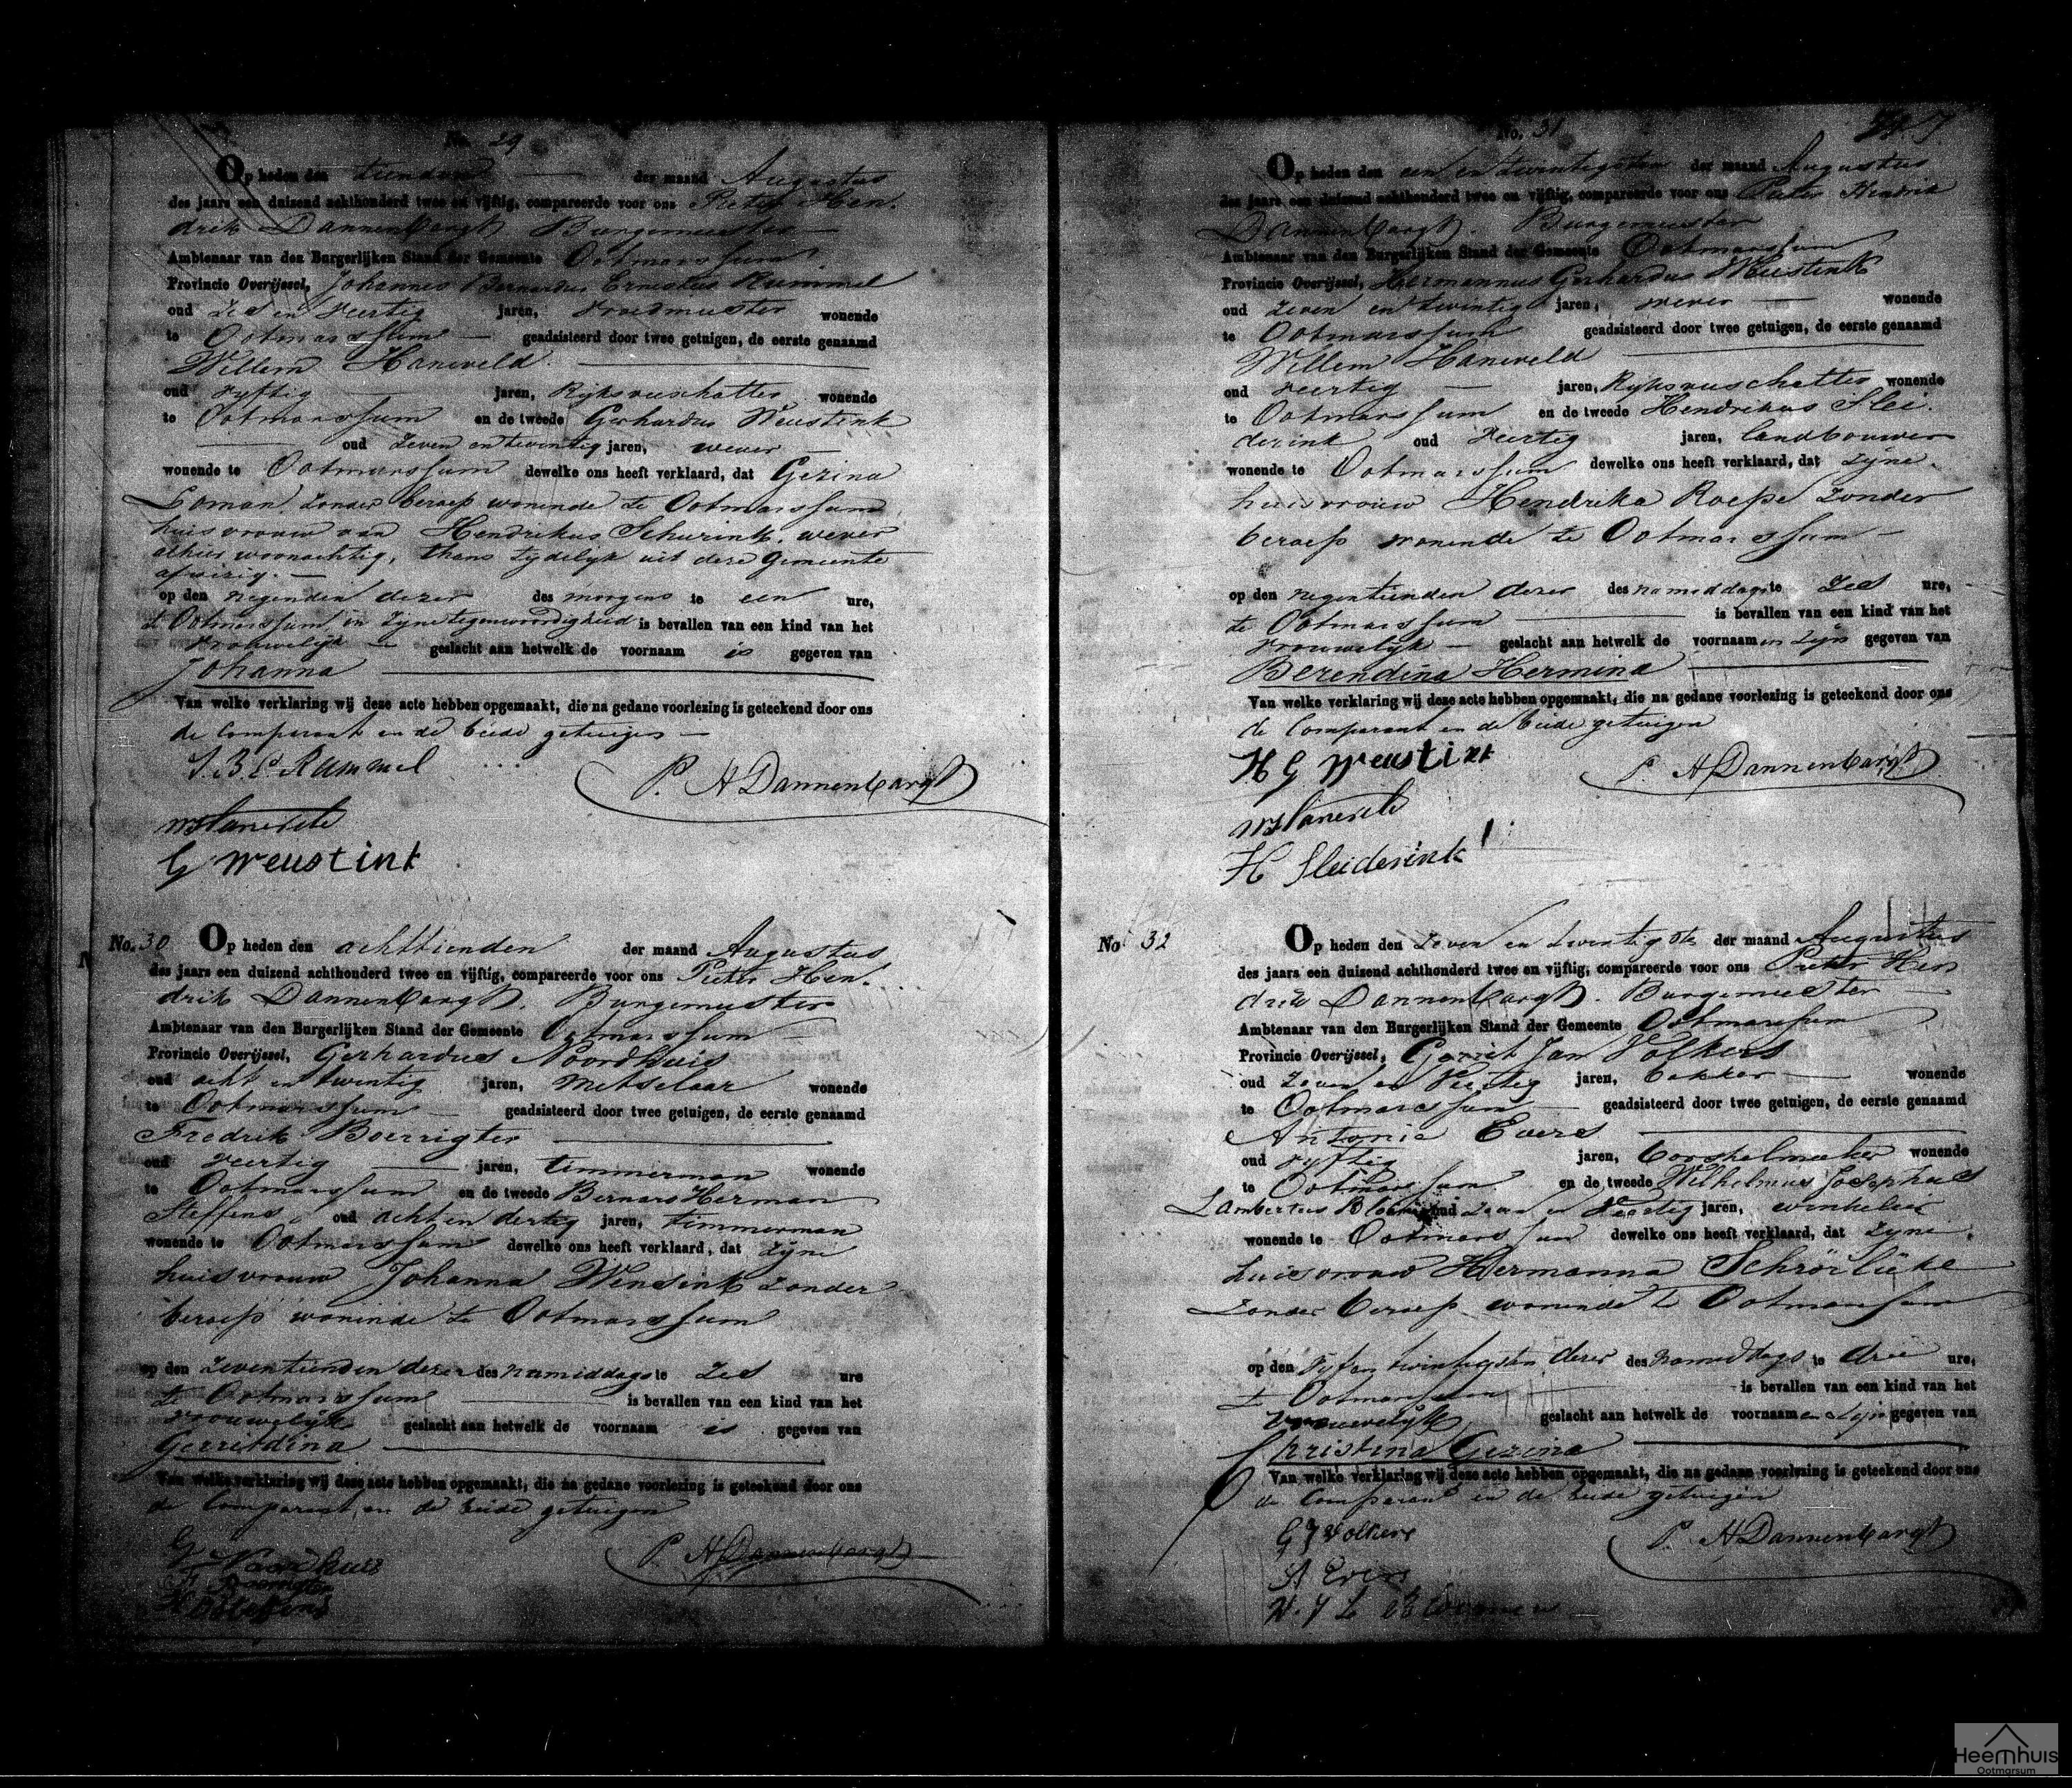 No. 29
Op heden den tienden der maand Augustus
des jaars een duizend achthonderd twee en vijftig, compareerde voor ons Pieter Hen-
drik Dannenbargh Burgemeester
Ambtenaar van den Burgerlijken Stand der Gemeente Ootmarssum
Provincie Overijssel, Johannes Bernardus Ernestus Rammel
oud Zes en Veertig jaren, vroedmeester wonende
te Ootmarssum geadsisteerd door twee getuigen, de eerste genaamd
Willem Haneveld
oud vyftig jaren, Ryksveeschatter wonende
te Ootmarssum en de tweede Gerhardus Weustink
oud Zeven en twintig jaren, wever
wonende te Ootmarssum dewelke ons heeft verklaard, dat Gezina
Loman, Zonder beroep wonende te Ootmarssum
huisvrouw van Hendrikus Schurink, wever
alhier woonachtig, thans tydelyk uit deze Gemeente
afwezig.
op den negenden dezer des morgens te een ure,
te Ootmarssum in Zyne tegenwoordigheid is bevallen van een kind van het
vrouwelyk geslacht aan hetwelk de voornaam is gegeven van
Johanna
Van welke verklaring wij deze acte hebben opgemaakt, die na gedane voorlezing is geteekend door ons
de Comparant en de beide getuigen
J. B. E. Rammel
P. H Dannenbargh
W Haneveld
G Weustink
No. 30
Op heden den achttienden der maand Augustus
des jaars een duizend achthonderd twee en vijftig, compareerde voor ons Pieter Hen-
drik Dannenbargh, Burgemeester
Ambtenaar van den Burgerlijken Stand der Gemeente Ootmarssum
Provincie Overijssel, Gerhardus Noordhuis
oud acht en twintig jaren, metselaar wonende
te Ootmarssum geadsisteerd door twee getuigen, de eerste genaamd
Fredrik Boerrigter
oud veertig jaren, timmerman wonende
te Ootmarssum en de tweede Bernard Herman
Steffens, oud acht en dertig jaren, timmerman
wonende te Ootmarssum dewelke ons heeft verklaard, dat Zyne
huisvrouw Johanna Wensink Zonder
beroep wonende te Ootmarssum
op den Zeventienden dezer des namiddags te Zes ure
te Ootmarssum is bevallen van een kind van het
vrouwelyk geslacht aan hetwelk de voornaam is gegeven van
Gerritdina
Van welke verklaring wij deze acte hebben opgemaakt, die na gedane voorlezing is geteekend door ons
de Comparant en de beide getuigen
G Noordhuis
P. H Dannenbargh
F Boerrigter
No. 31
Op heden den een en twintigsten der maand Augustus
des jaars een duizend achthonderd twee en vijftig, compareerde voor ons Pieter Hendrik
Dannenbargh. Burgemeester
Ambtenaar van den Burgerlijken Stand der Gemeente Ootmarssum
Provincie Overijssel, Hermannus Gerhardus Weustink
oud Zeven en twintig jaren, wever wonende
te Ootmarssum geadsisteerd door twee getuigen, de eerste genaamd
Willem Haneveld
oud veertig jaren, Ryksveeschatter wonende
te Ootmarssum en de tweede Hendrikus Slei-
derink oud Veertig jaren, landbouwer
wonende te Ootmarssum dewelke ons heeft verklaard, dat Zyne
huisvrouw Hendrika Roepe Zonder
beroep wonende te Ootmarssum
op den negentienden dezer des namiddags te Zes ure,
te Ootmarssum is bevallen van een kind van het
vrouwelyk geslacht aan hetwelk de voornaamen Zyn gegeven van
Berendina Hermina
Van welke verklaring wij deze acte hebben opgemaakt, die na gedane voorlezing is geteekend door ons
de Comparant en de beide getuigen
H G Weustink
P. H Dannenbargh
W Haneveld
H Sleiderink
No. 32
Op heden den Zeven en twintigste der maand Augustus
des jaars een duizend achthonderd twee en vijftig, compareerde voor ons Pieter Hen
drik Dannenbargh. Burgemeester
Ambtenaar van den Burgerlijken Stand der Gemeente Ootmarssum
Provincie Overijssel, Gerrit Jan Volkers
oud Zeven en Veertig jaren, bakker wonende
te Ootmarssum geadsisteerd door twee getuigen, de eerste genaamd
Antonie Evers
oud vyftig jaren, borstelmaker wonende
te Ootmarssum en de tweede Wilhelmus Josephus
Lambertus oud Zeven en Veertig jaren, winkelier
wonende te Ootmarssum dewelke ons heeft verklaard, dat Zyne
huisvrouw Hermanna Schrörlüeke
Zonder beroep wonende te Ootmarssum
op den Vyf en twintigsten dezer des namiddags te drie ure,
te Ootmarssum is bevallen van een kind van het
vrouwelyk geslacht aan hetwelk de voornaamen Zyn gegeven van
Christina Gezina
Van welke verklaring wij deze acte hebben opgemaakt, die na gedane voorlezing is geteekend door ons
de Comparant en de beide getuigen
G J Volkers
P. H Dannenbargh
A Evers
W. J L
Heemhuis
Ootmarsum